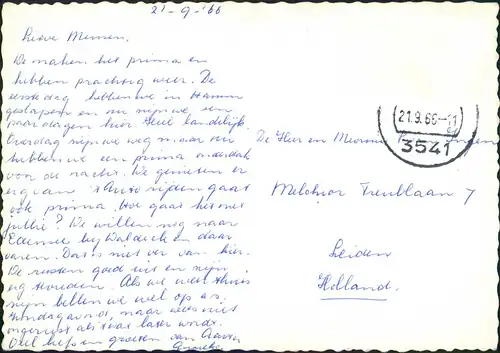 21-9-'66
Lieve Mensen.
We maken het prima en
hebben prachtig weer. De
eerste dag hebben we in Hamm
geslapen en nu zijn we een
paar dagen hier. Heel landelijk.
Overdag zijn we weg maar we
hebben we een prima onderdak
voor de nacht. We genieten er
erg van. 't Auto rijden gaat
ook prima. Hoe gaat het met
jullie? We willen nog naar
Edersee bij Waldeck en daar
varen. Dat is niet ver van hier.
De zien goed uit en zijn
erg tevreden. Als we weer thuis
zijn bellen we wel op
Zondagavond, maar wees niet
ongerust als 't wat later wordt.
Veel liefs en groeten van
De Heer en Mevrouw
Melchior Treublaan 7
Leiden
Holland.
21.9.66-11
3541